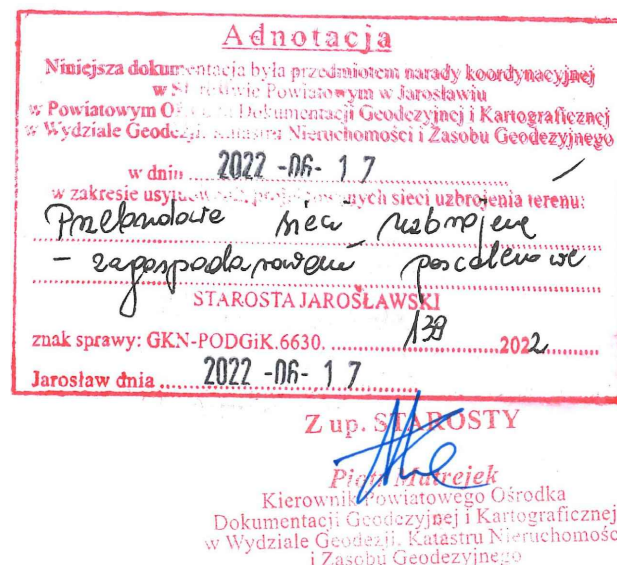 Adnotacja
Niniejsza dokumentacja była przedmiotem narady koordynacyjnej
w Starostwie Powiatowym w Jarosławiu
w Powiatowym Ośrodku Dokumentacji Geodezyjnej i Kartograficznej
w Wydziale Geodezji, Katastru Nieruchomości i Zasobu Geodezyjnego
w dniu 2022 -06- 17
w zakresie usytuowania projektowanych sieci uzbrojenia terenu:
Przebudowa sieci uzbrojenia
- zagospodarowanie poscaleniowe
STAROSTA JAROSŁAWSKI
znak sprawy: GKN-PODGiK.6630. 139 2022
Jarosław dnia 2022 -06- 17
Z up. STAROSTY
Piotr Matrejek
Kierownik Powiatowego Ośrodka
Dokumentacji Geodezyjnej i Kartograficznej
w Wydziale Geodezji, Katastru Nieruchomości
i Zasobu Geodezyjnego